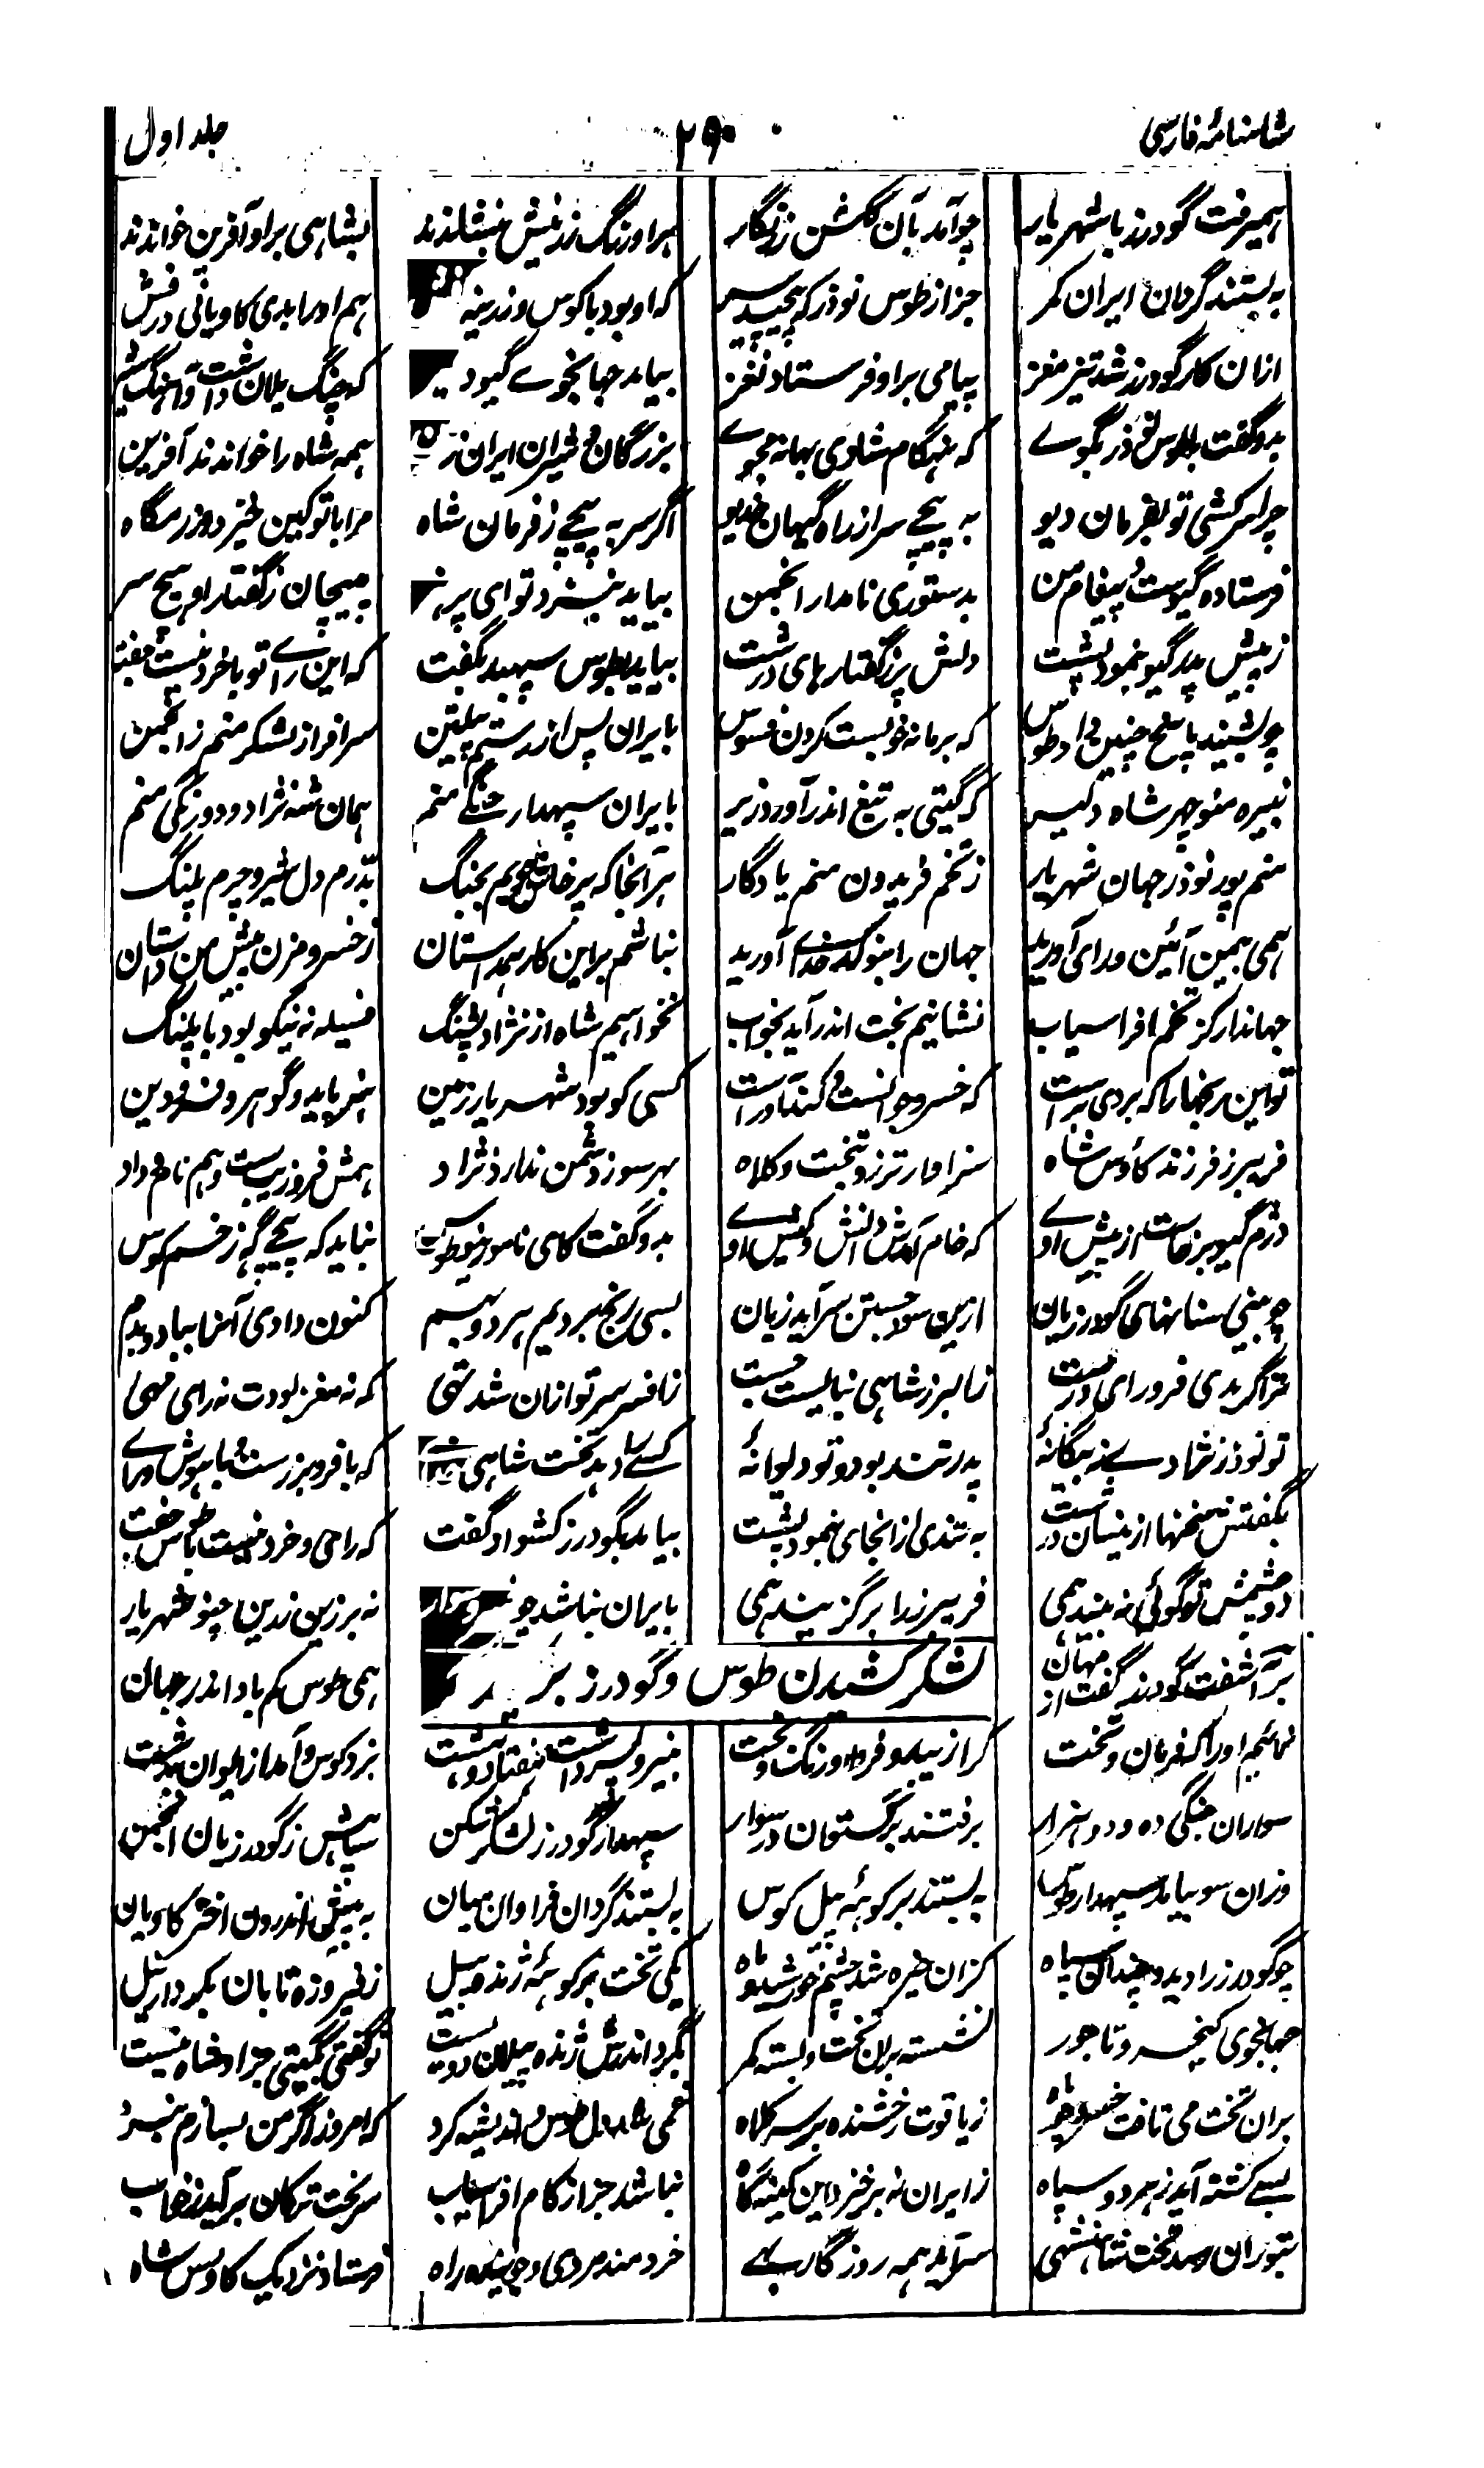 شاهنامهٔ فارسی ۲۹۰ جلد اول
همیرفت گودرز با شهریار چو آمد بآن گلشن زرنگار بر اورنگ زرینش بنشاندند بشاهی براو آفرین خواندند
به بستند گردان ایران کمر جز از طوس نوذر که پیچید سر که او بود با کوس و زرینه هم او را بدی کاویانی درفش
ازان کار گودرز شد تیز مغز پیامی براو فرستاد نغز بیامد جهانجوے گیو دلیر که چنگ یلان داشت و آهنگ شیر
بدو گفت با طوس نوذر بگوے که هنگام شادی بهانه مجوے بزرگان و شیران ایران زمین همه شاه را خواندند آفرین
چرا سرکشی تو بفرمان دیو به پیچے سر از راه گیهان خدیو اگر سر به پیچے ز فرمان شاه مرا با تو کین خیزد و رزمگاه
فرستاده گیوست و پیغام من بدستوری نامدار انجمن بیاید بنزد تو ای پرهنر مپیچان ز گفتار او هیچ سر
ز پیش پدر گیو بنمود پشت دلش پر ز گفتارهای درشت بیامد بطوس سپهبد بگفت که این راے تو با خرد نیست جفت
چو بشنید پاسخ چنین داد طوس که بر ما نه خوبست کردن فسوس بایران پس از رستم پیلتن سرافراز لشکر منم ز انجمن
نبیره منوچهر شاه دلیر که گیتی به تیغ اندر آورد زیر بایران سپهدار جنگے منم همان شه نژاد و دورنگی منم
منم پور نوذر جهان شهریار ز تخم فریدون منم یادگار هر آنجا که پرخاش جویم بجنگ بدرم دل شیر و چرم پلنگ
همی بیمن آئین و رای آورید جهان را بنو کدخداے آورید نباشم براین کار همداستان ز خسرو مزن پیش من داستان
جهاندار کز تخم افراسیاب نشانیم بخت اندر آید بخواب نخواهیم شاه از نژاد پشنگ فسیله نه نیکو بود با پلنگ
تو این رنجها را که بردی براست که خسرو جوانست و کندآورست کسی کو بود شهریار زمین هنر باید و گوهر و فر و دین
فریبرز فرزند کاؤس شاه سزاوارتر زو بتخت و کلاه بهر سو ز دشمن ندارد نژاد همش فر و برزست و هم نام و داد
دژم گیو برخاست از پیش اوے که خام آمدش دانش و کیش اوے بدو گفت کای نامور نیو طوس نباید که پیچے گه زخم کوس
چو بینی سنانهای گودرزیان ازین سود جستن سر آید زیان بسی رنج بردیم هر دو بهم کنون دادی آنرا بباد و بدم
ترا گر بدی فر و رای درست ز البرز شاهی نبایست جست ز افسر سر تو ازان شد تهی که نه مغز بودت نه رای مهی
تو نوذر نژادے نه بیگانهٔ پدر تند بود و تو دیوانهٔ کسے را دهد تخت شاهی که با فر و برزست و با هوش و راے
بگفتش سخنها ازینسان درشت به تندی از انجای بنمود پشت بیامد بگودرز کشواد گفت که رای و خرد نیست با طوس جفت
دو چشمش تو گوئی نه بیند همی فریبرز را برگزیند همی بایران نباشد چو نه بر زین زرین چنو شهریار
برآشفت گودرز و گفت از مهان همی طوس کم باد اندر جهان
لشکر کشیدن طوس و گودرز بر
نمائیم او را که فرمان و تخت کرا زیبد و فر و اورنگ و بخت نبیره پسر داشت هفتاد و هشت بزد کوس و آمد ز ایوان بدشت
سواران جنگی ده و دو هزار برفتند برگستوان در سوار سپهدار گودرز لشکر شکن سپاهش ز گودرزیان انجمن
وزان سو بیامد سپهدار طوس به بستند بر کوههٔ پیل کوس به بستند گردان فراوان میان به پیش اندرون اختر کاویان
چو گودرز را دید و چندان سپاه کزان خیره شد چشم خورشید و ماه یکی تخت بر کوههٔ ژنده پیل ز فیروزه تابان بکردار نیل
جهانجوی کیخسرو تاجور نشسته بران تخت و بسته کمر بگرد اندرش ژنده پیلان دویست تو گفتی بگیتی جز او شاه نیست
بران تخت می تافت خسرو چو ماه ز یاقوت رخشنده بر سر کلاه غمی شد دل طوس و اندیشه کرد که امروز اگر من بسازم نبرد
بسے کشته آید ز هر دو سپاه ز ایران نه برخیزد این کینه گاه نباشد جز از کام افراسیاب سر بخت ترکان برآید ز خواب
بتوران رسد تخت شاهنشهی سر آید همه روزگار بهی خردمند مردی و جوینده راه فرستاد نزدیک کاوس شاه